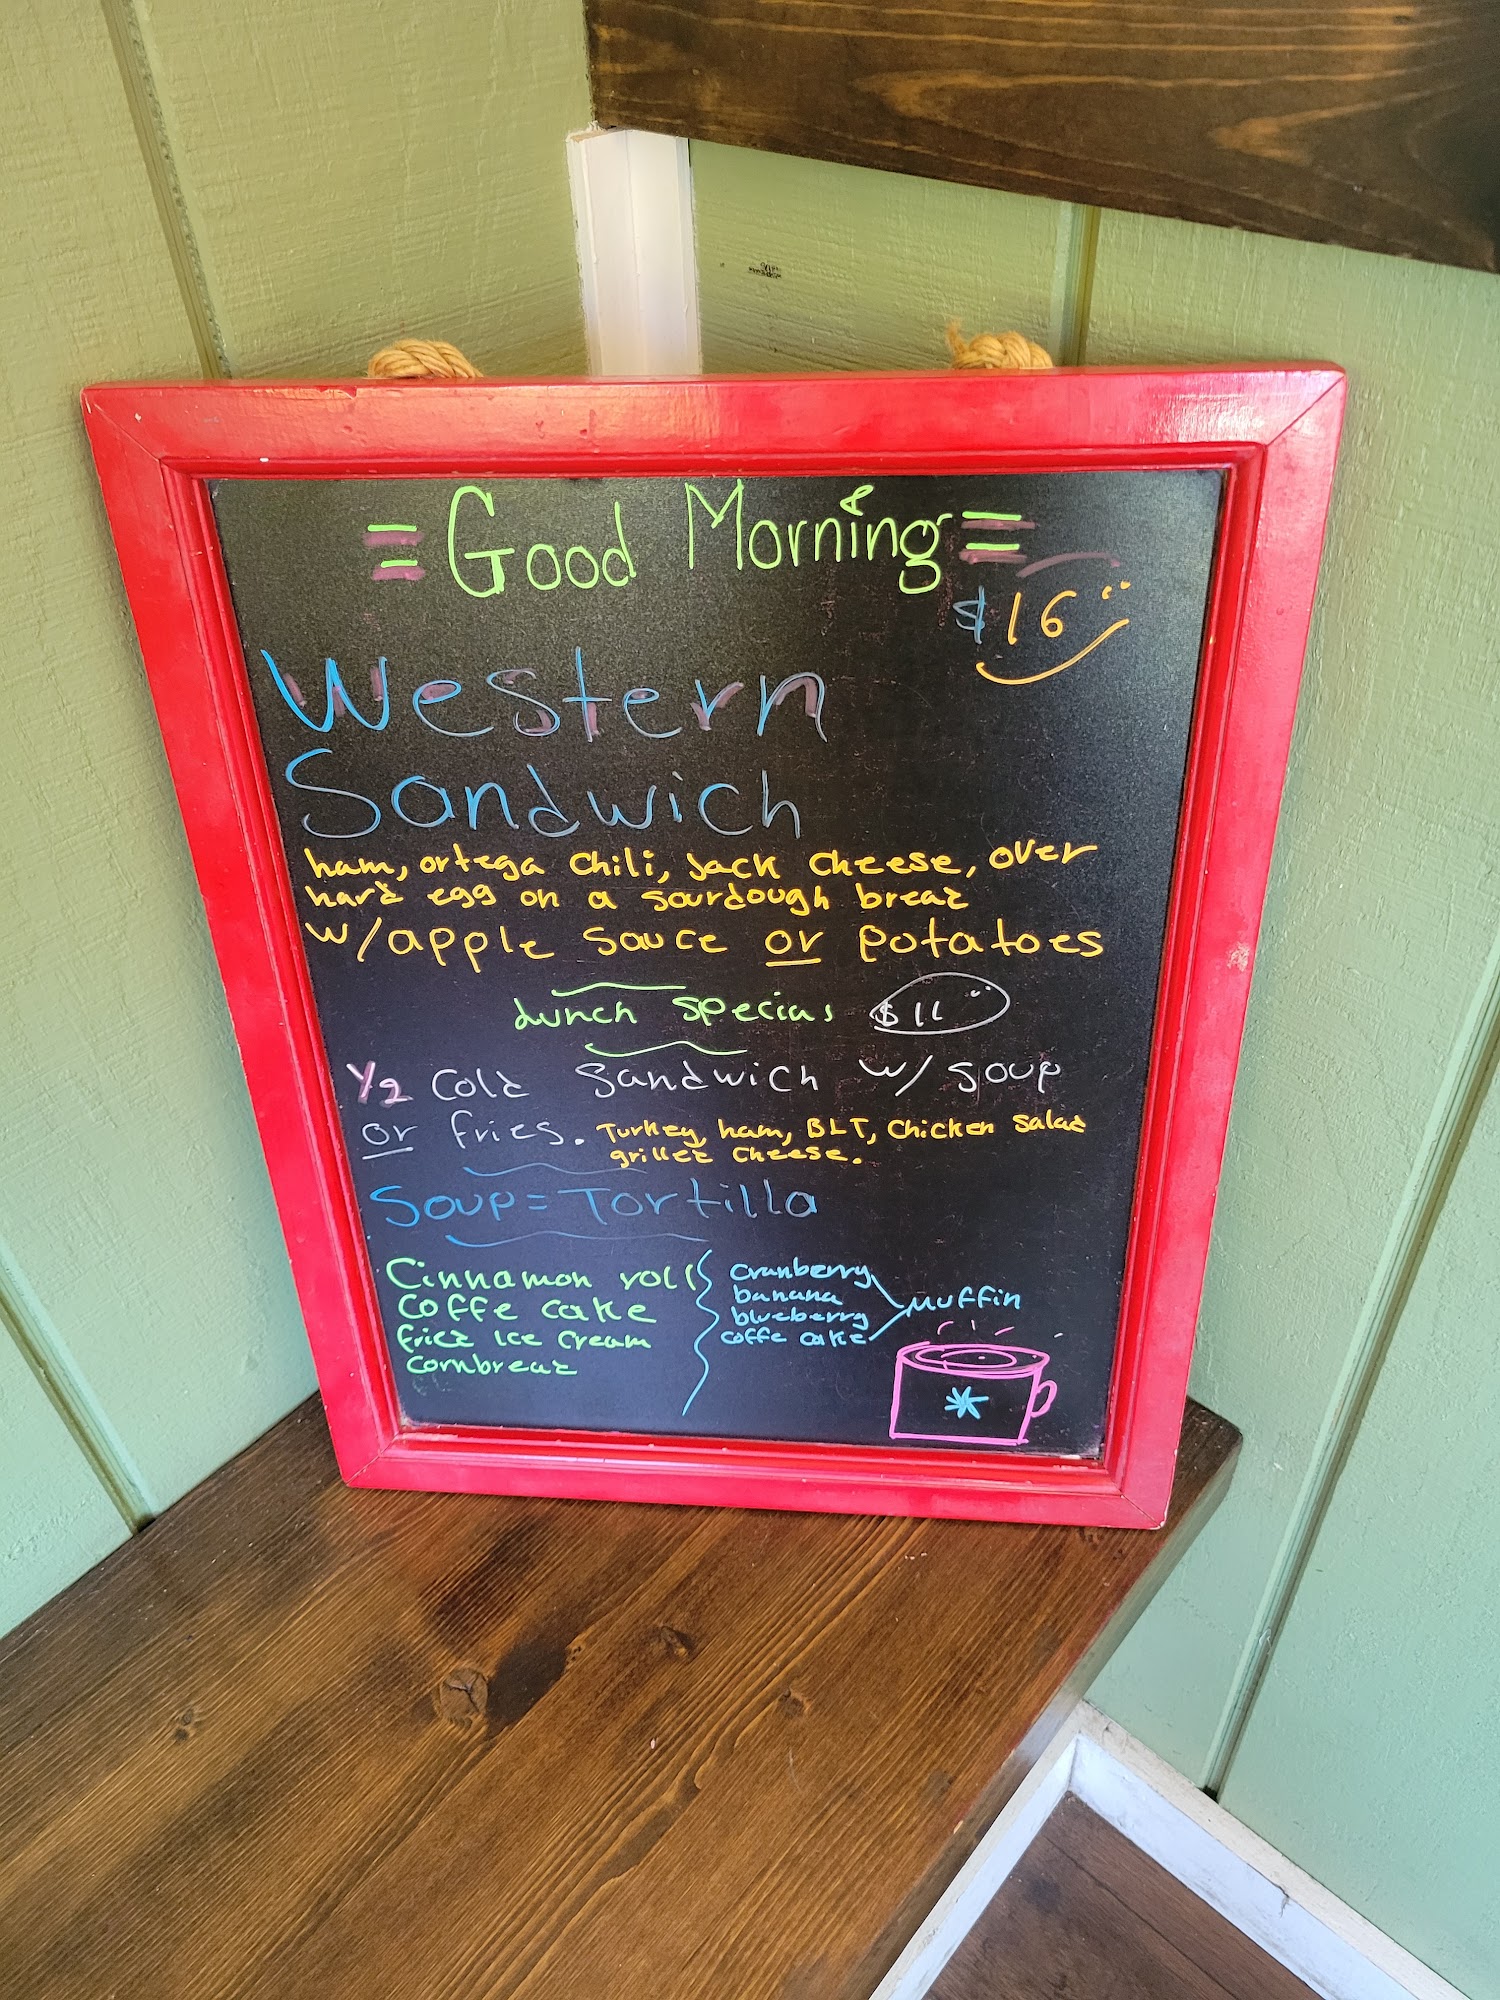 = Good Morning =
$16
Western
Sandwich
ham, ortega chili, Jack cheese, over
hard egg on a sourdough bread
w/apple sauce or potatoes
Lunch special $11
1/2 Cold Sandwich w/ soup
or fries. Turkey, ham, BLT, Chicken salad
grilled cheese.
Soup = Tortilla
Cinnamon roll
Coffe cake
fried Ice cream
cornbread
cranberry
banana
blueberry
coffe cake
Muffin